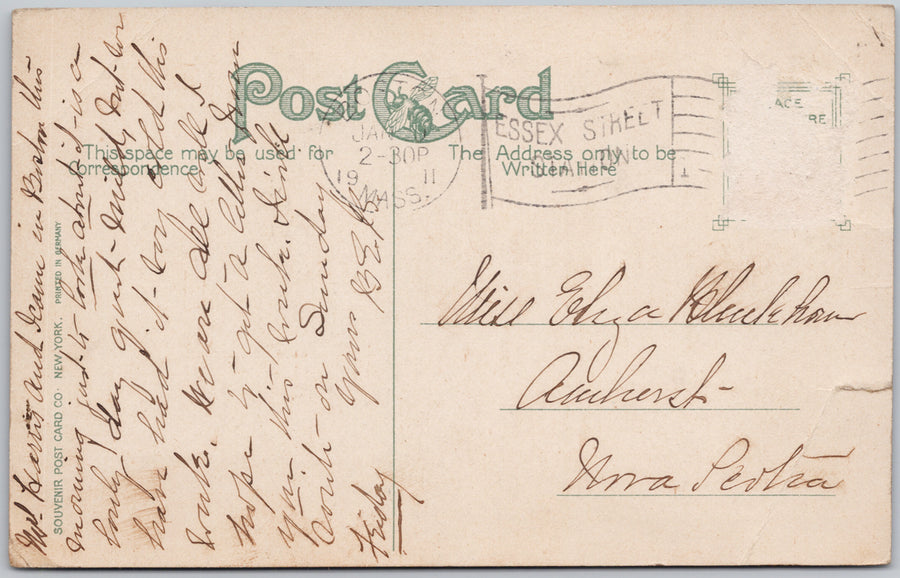 Post Card
This space may be used for
correspondence
The Address only to be
Written Here
JAN
2-30P
19 11
MASS.
ESSEX STREET
STATION
1
ACE
RE
SOUVENIR POST CARD CO. NEW YORK. PRINTED IN GERMANY
Miss Eliza
Amherst
Nova Scotia
Mr Harris and I am in Boston this
morning just to look around it is a
lovely day quite mild, but we
have had it very cold this
week. We are all well I
hope to get a letter from
you this week. Will
write on Sunday
Yours
Friday